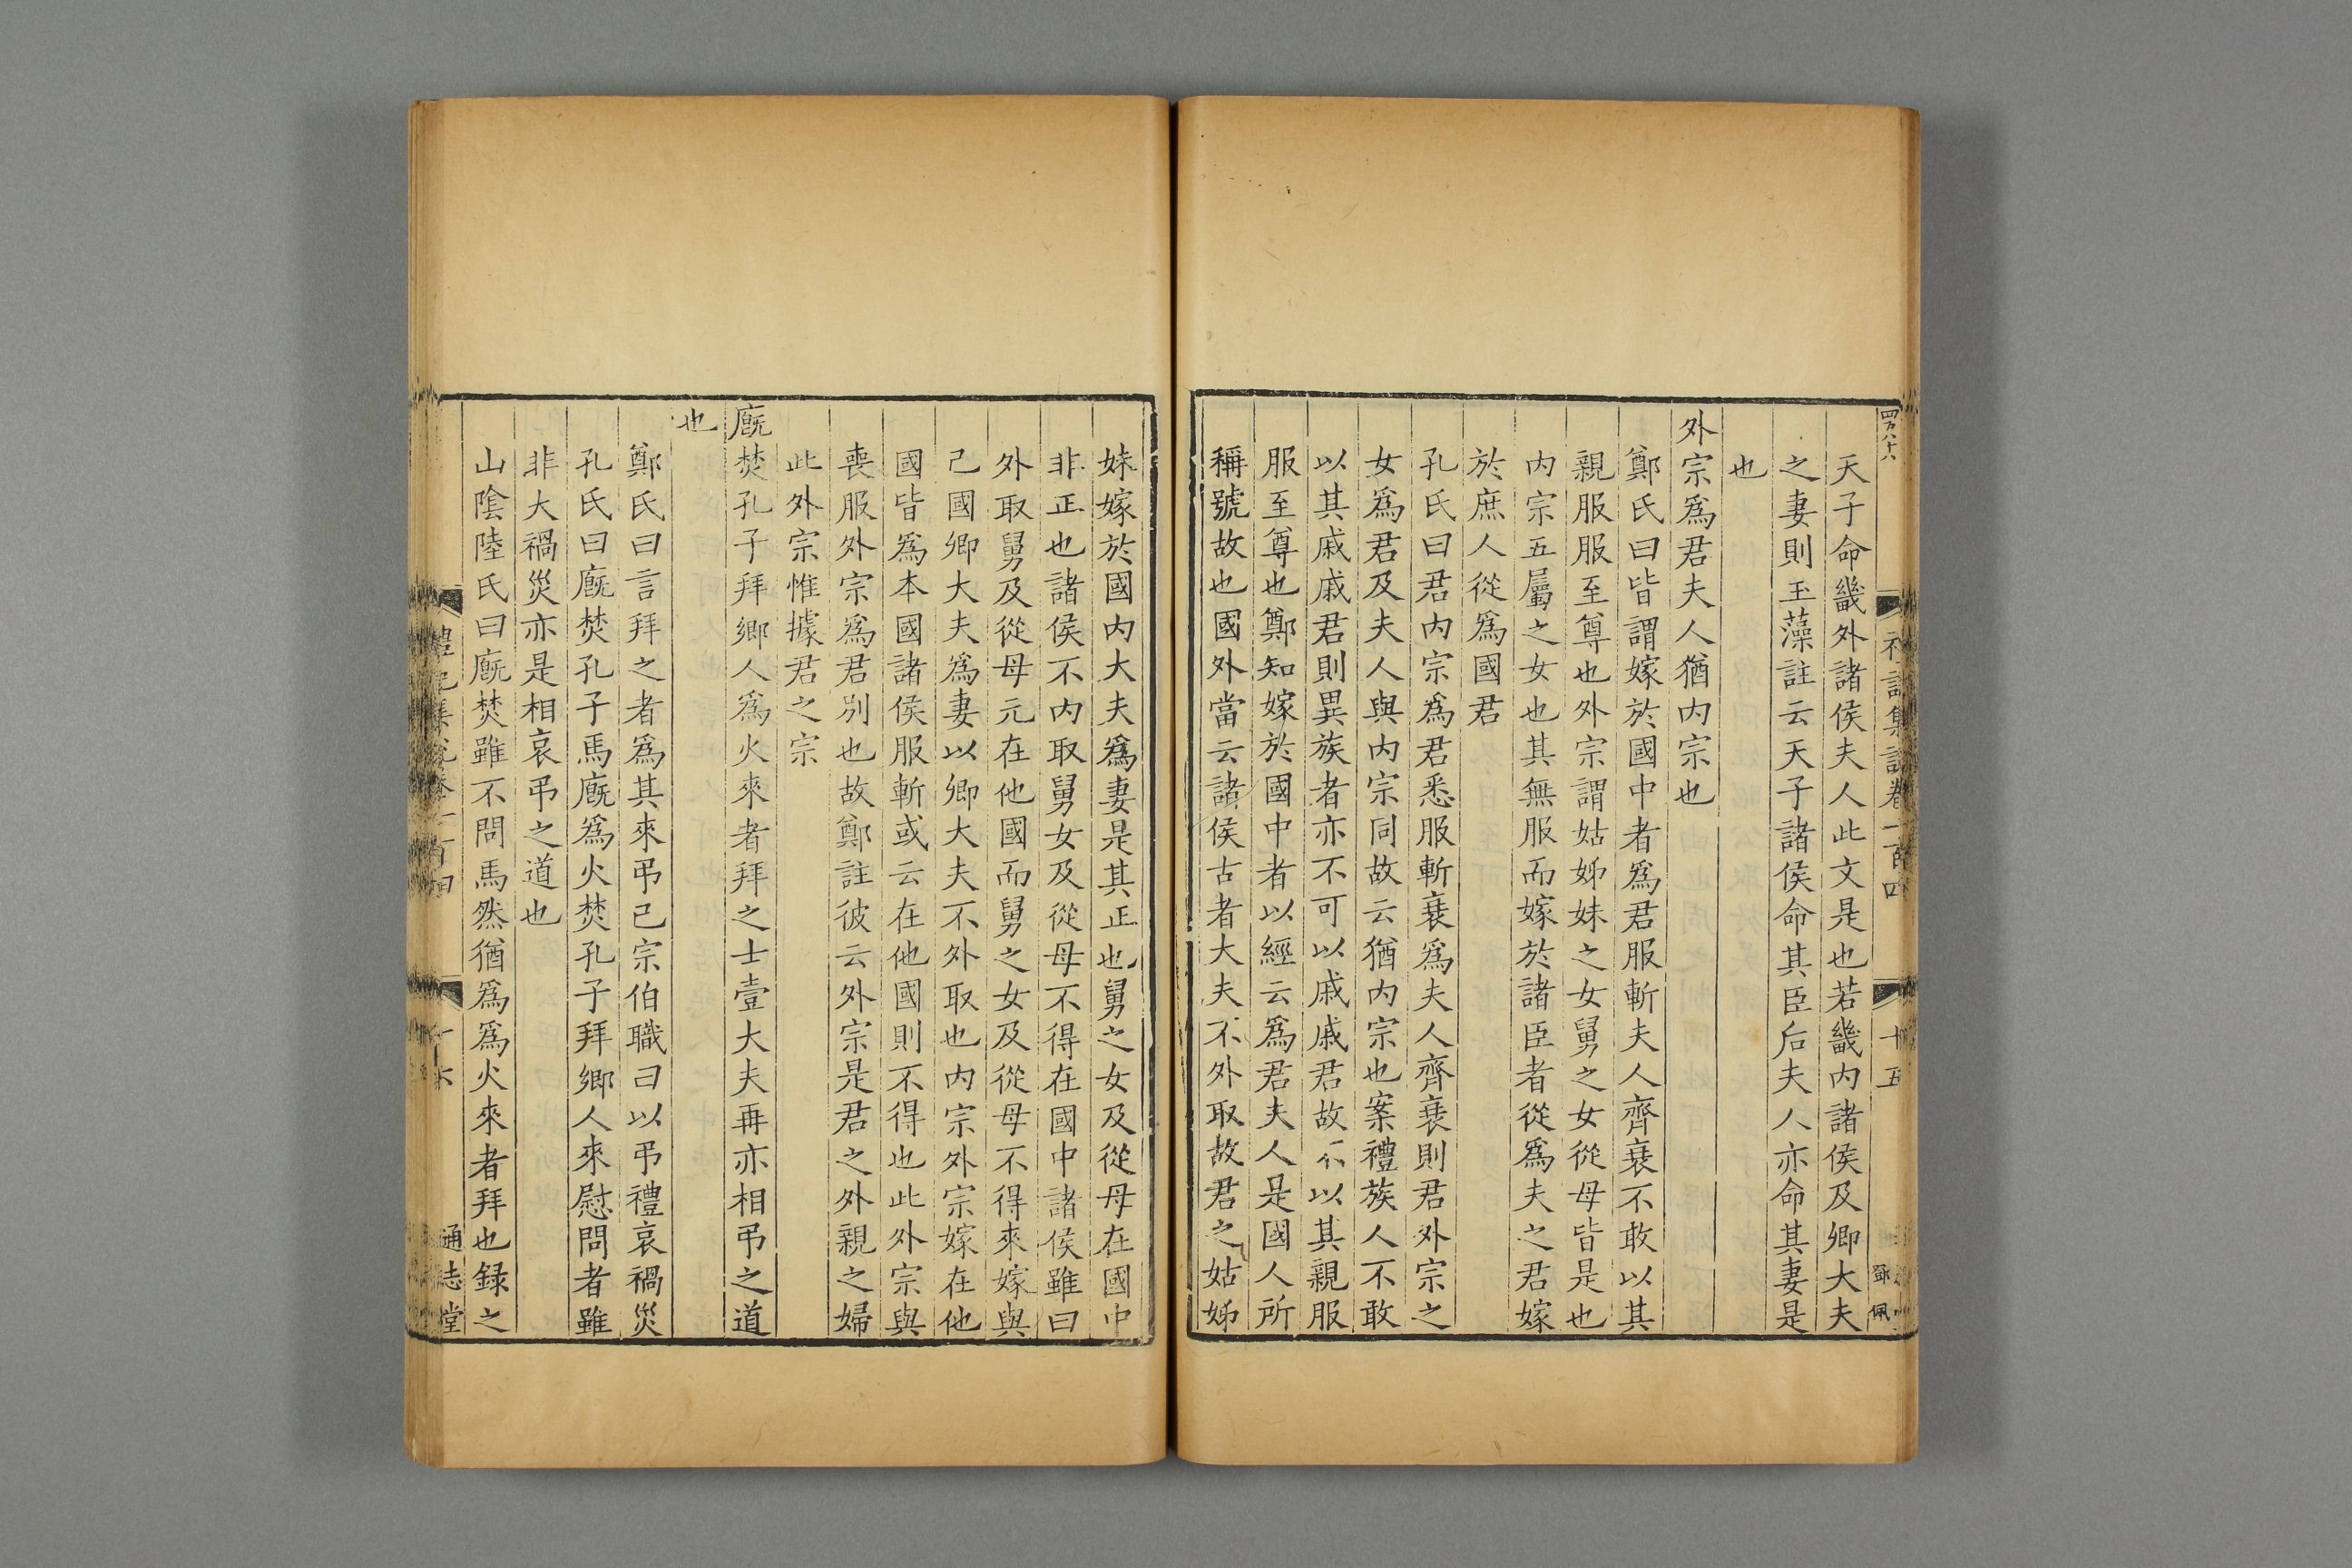 天子命畿外諸侯夫人此文是也若畿内諸侯及卿大夫
之妻則玉藻註云天子諸侯命其臣后夫人亦命其妻是
也
外宗爲君夫人猶内宗也
鄭氏曰皆謂嫁於國中者爲君服斬夫人齊衰不敢以其
親服服至尊也外宗謂姑姊妹之女舅之女從母皆是也
内宗五屬之女也其無服而嫁於諸臣者從爲夫之君嫁
於庶人從爲國君
孔氏曰君内宗爲君悉服斬衰爲夫人齊衰則君外宗之
女爲君及夫人與内宗同故云猶内宗也案禮族人不敢
以其戚戚君則異族者亦不可以戚戚君故不以其親服
服至尊也鄭知嫁於國中者以經云爲君夫人是國人所
稱號故也國外當云諸侯古者大夫不外取故君之姑姊
妹嫁於國内大夫爲妻是其正也舅之女及從母在國中
非正也諸侯不内取舅女及從母不得在國中諸侯雖曰
外取舅及從母元在他國而舅之女及從母不得來嫁與
己國卿大夫爲妻以卿大夫不外取也内宗外宗嫁在他
國皆爲本國諸侯服斬或云在他國則不得也此外宗與
喪服外宗爲君别也故鄭註彼云外宗是君之外親之婦
此外宗惟據君之宗
廐焚孔子拜鄉人爲火來者拜之士壹大夫再亦相弔之道
也
鄭氏曰言拜之者爲其來弔己宗伯職曰以弔禮哀禍災
孔氏曰廐焚孔子馬廐爲火焚孔子拜鄉人來慰問者雖
非大禍災亦是相哀弔之道也
山隂陸氏曰廐焚雖不問馬然猶爲爲火來者拜也録之
禮記集說卷一百四
十六
通志堂